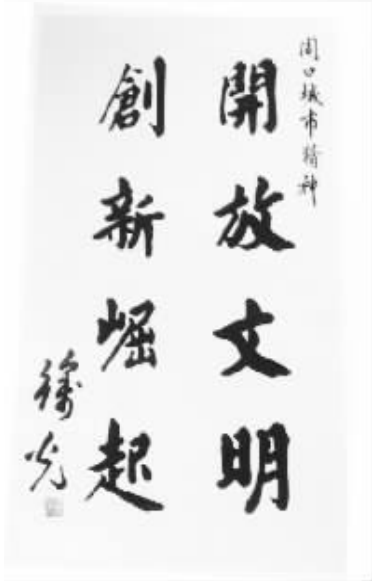 周口城市精神
開放文明
創新崛起